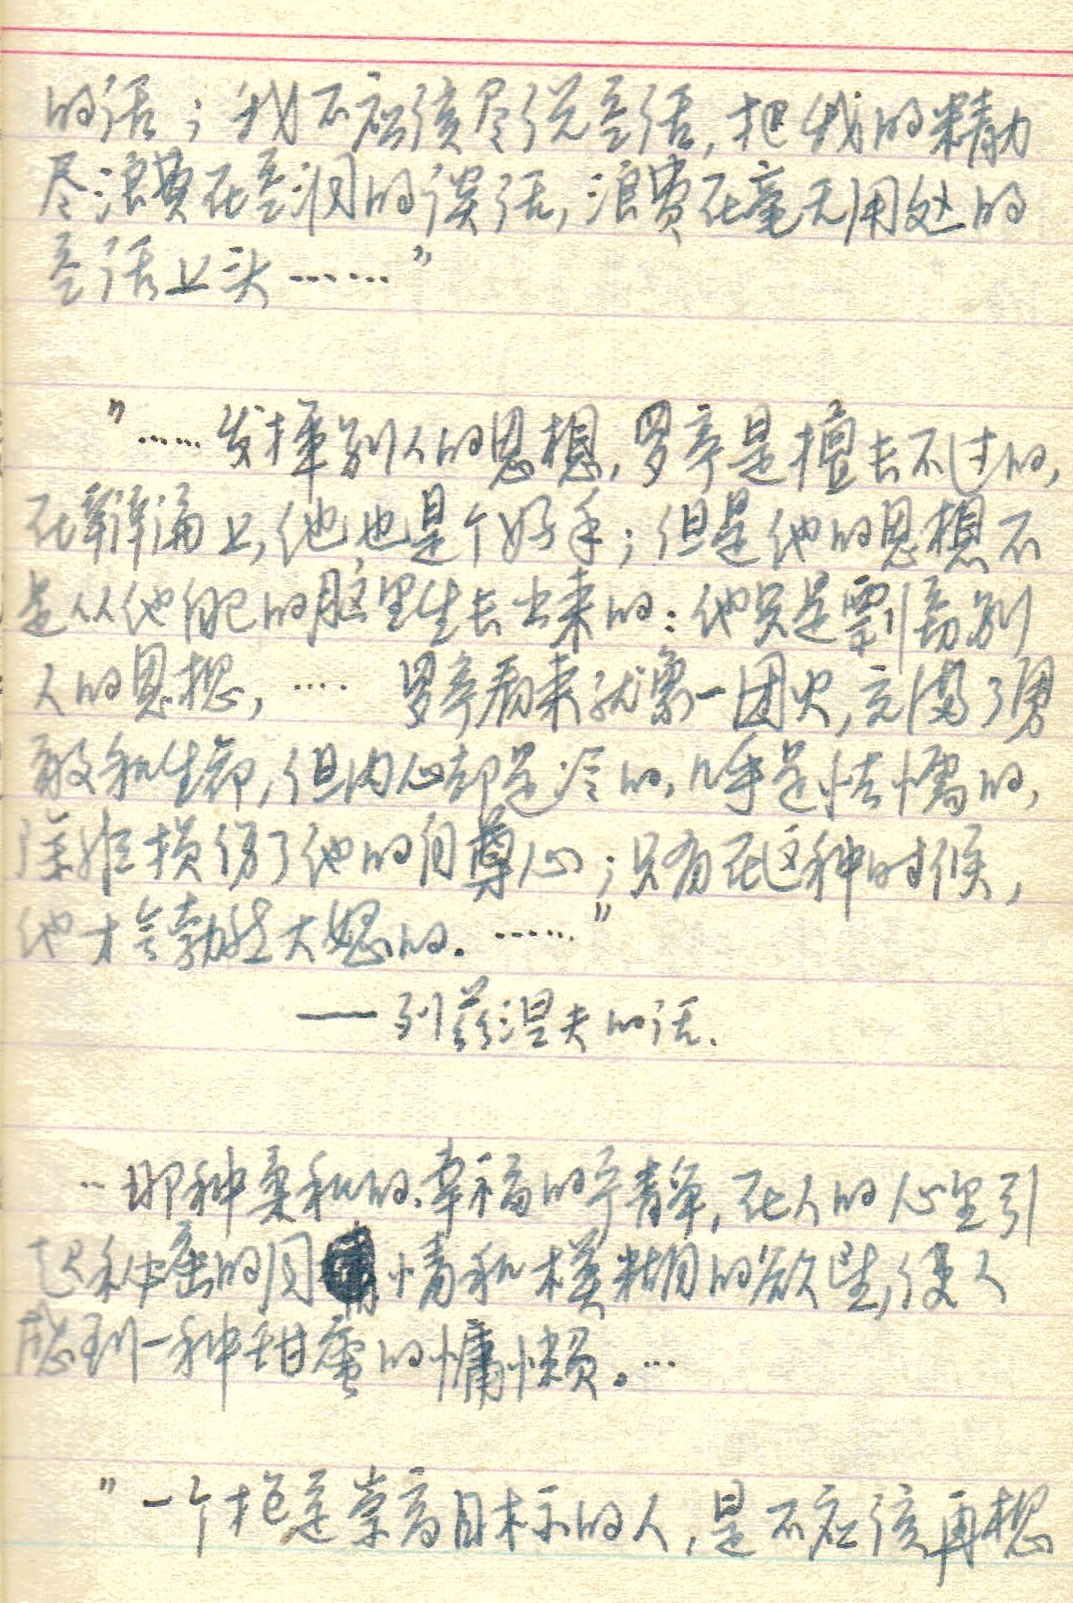 的话；我不应该尽说空话，把我的精力
尽浪费在空洞的谈话，浪费在毫无用处的
空话上头……”
“……发挥别人的思想，罗亭是擅长不过的，
在辩论上，他也是个好手；但是他的思想不
是从他自己的脑里生长出来的：他只是剽窃别
人的思想，…… 罗亭看来就象一团火，充满了勇
敢和生命，但内心却是冷的，几乎是怯懦的，
除非损伤了他的自尊心；只有在这种时候，
他才会勃然大怒的。……”
——列兹涅夫的话.
…那种柔和的、幸福的宁静，在人的心里引
起种的同情和模糊的欲望，使人
感到一种甜蜜的慵懒。…
“一个抱定崇高目标的人，是不应该再想